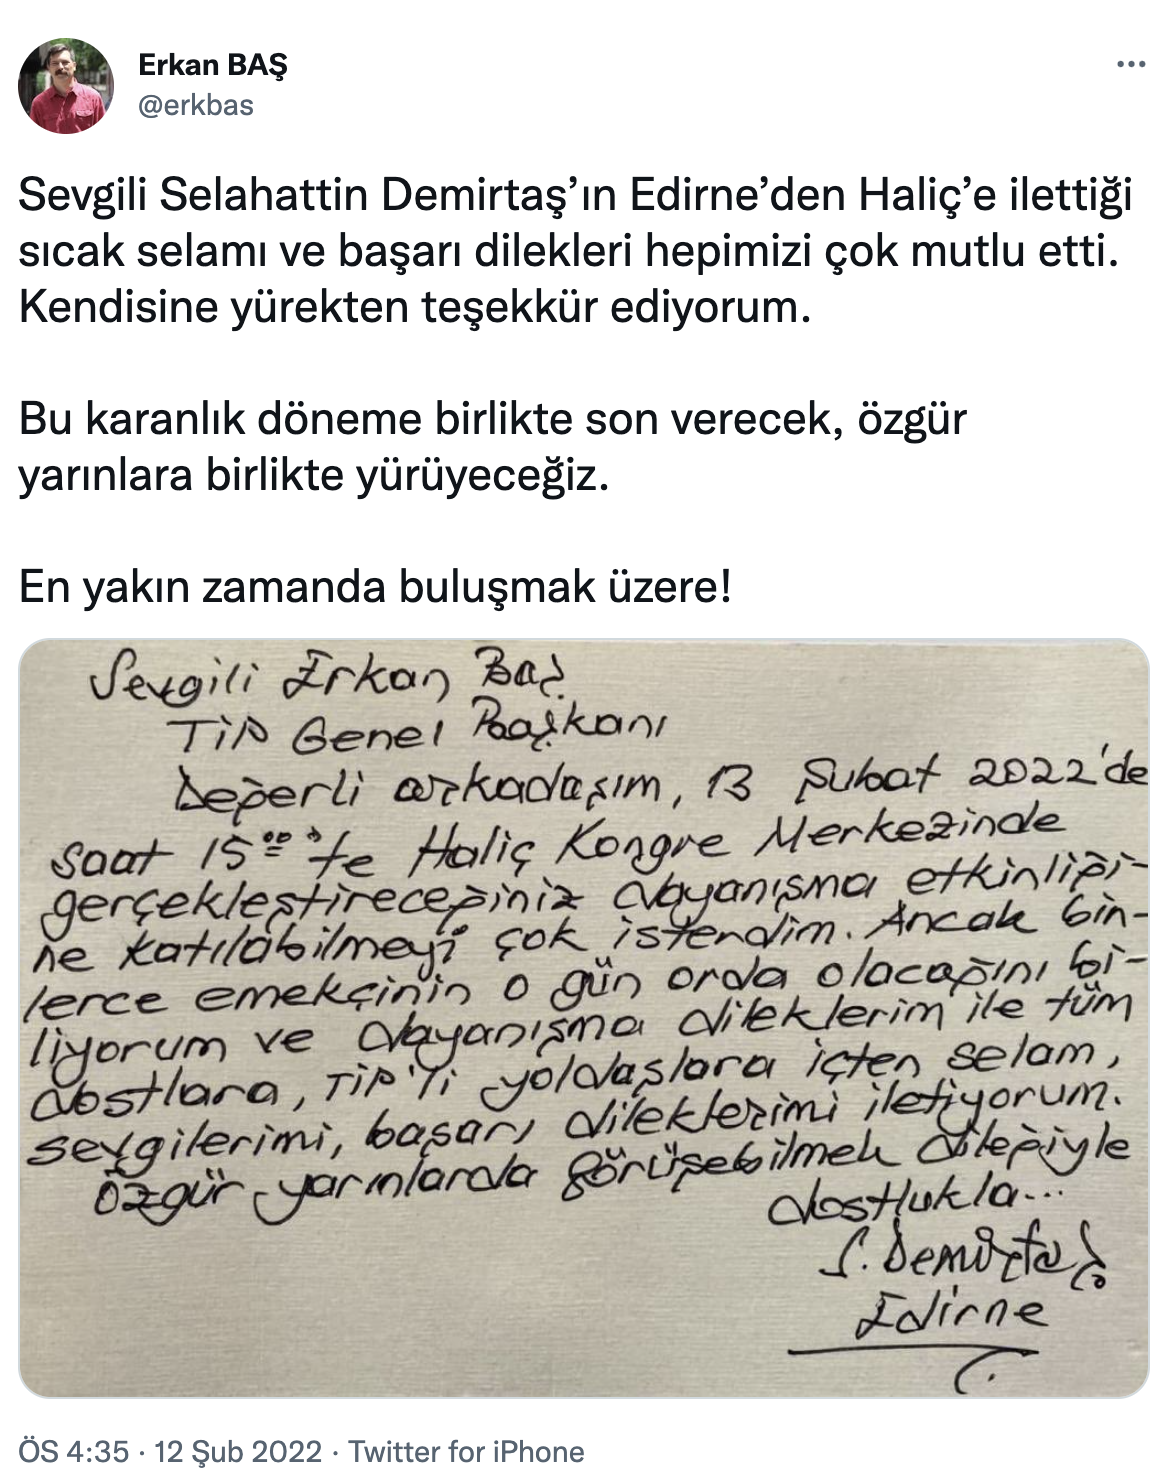 Erkan BAŞ
@erkbas
Sevgili Selahattin Demirtaş’ın Edirne’den Haliç’e ilettiği
sıcak selamı ve başarı dilekleri hepimizi çok mutlu etti.
Kendisine yürekten teşekkür ediyorum.
Bu karanlık döneme birlikte son verecek, özgür
yarınlara birlikte yürüyeceğiz.
En yakın zamanda buluşmak üzere!
Sevgili Erkan Baş
TİP Genel Başkanı
Değerli arkadaşım, 13 Şubat 2022'de
saat 15⁰⁰'te Haliç Kongre Merkezinde
gerçekleştireceğiniz dayanışma etkinliği-
ne katılabilmeyi çok isterdim. Ancak bin-
lerce emekçinin o gün orda olacağını bi-
liyorum ve dayanışma dileklerim ile tüm
dostlara, TİP'li yoldaşlara içten selam,
sevgilerimi, başarı dileklerimi iletiyorum.
Özgür yarınlarda görüşebilmek dileğiyle
dostlukla...
S. Demirtaş
Edirne
ÖS 4:35 · 12 Şub 2022 · Twitter for iPhone